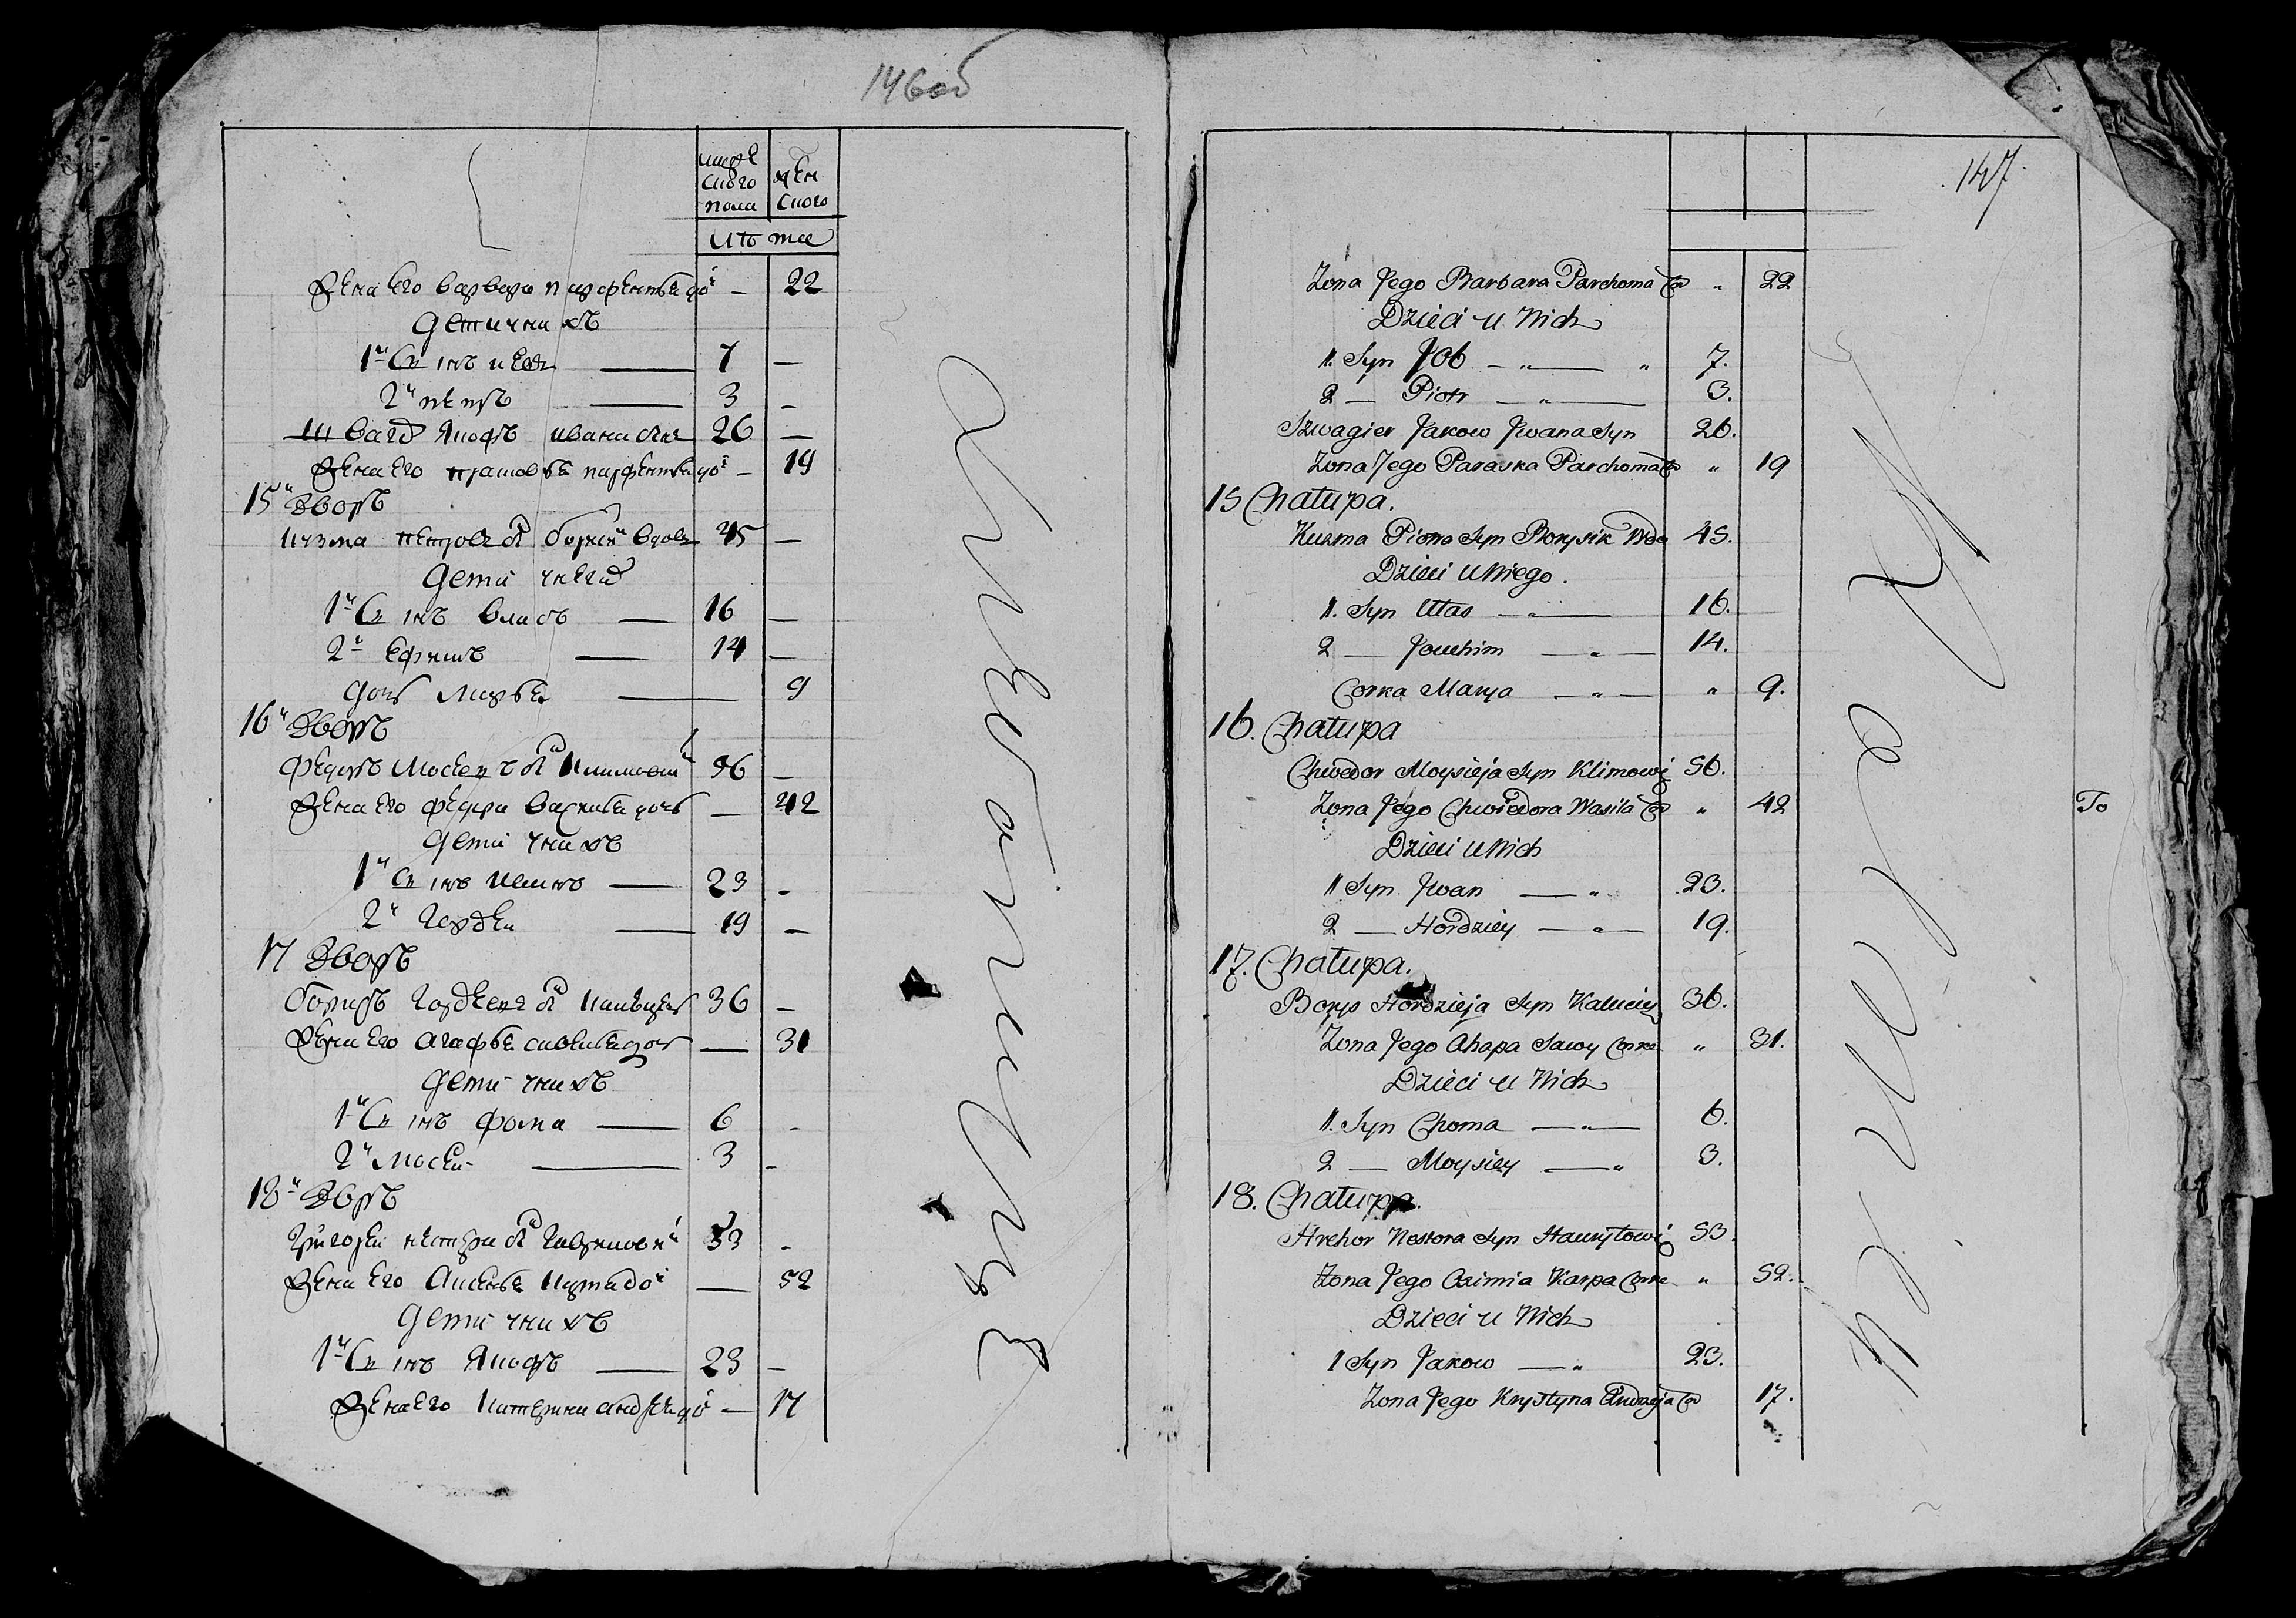 146об
мужеского пола
женского
ито же
Жена Его варвара парфентьева до
Дети у них
1й Сынъ иевъ — 7 —
2й петръ — 3 —
швагер Яковъ иванов сынъ 26 —
Жена Его прасковья парфентьева до — 19
15й Дворъ
Кузма петров сн борисик вдовъ 45 —
Дети у него
1й Сынъ власъ — 16 —
2й Ефимъ — 14 —
дочь Марья — 9
16й Дворъ
Федоръ Мосеев сн Климович 56 —
Жена Его федора васильева дочь — 42
Дети у них
1й Сынъ иванъ — 23 -
2й Гордей — 19 —
17 Дворъ
борисъ Гордеев сн 36 —
Жена Его Агафья савельева дочь — 31
Дети у них
1й Сынъ фома — 6 -
2й Мосей — 3 -
18й Дворъ
Григорей нестеров сн Гаврилович 53 -
Жена Его Аксенья Карпова до — 52
Дети у них
1й Сынъ Яковъ — 23 —
Жена Его Катерина андреева до — 17
147.
Zona Jego Barbara Parchoma Co " 22
Dzieci u Nich
1. Syn Job — " — " 7.
2 — Piotr — " — 3.
Szwagier Jakow Jwana Syn 26.
Zona Jego Paraska Parchoma Co " 19
15 Chatupa.
Kuzma Piotra Syn Borysik Wdo 45.
Dzieci u Niego.
1. Syn Utas — " — 16.
2 — Jouchim — " — 14.
Corka Marya — " — " 9.
16. Chatupa
Chwedor Moysieja Syn Klimowicz 56.
Zona Jego Chwiedora Wasila Co " 42
Dzieci u Nich
1 Syn Jwan — " 23.
2 — Hordziey — " — 19.
17. Chatupa.
Borys Hordzieja Syn 36.
Zona Jego Ahapa Sawy Corka " 31.
Dzieci u Nich
1. Syn Choma — " — 6.
2 — Moysiey — " 3.
18. Chatupa.
Hrehor Nestora Syn Hawrylowicz 53.
Zona Jego Axinia Karpa Corka " 52.
Dzieci u Nich
1 Syn Jakow — " 23.
Zona Jego Krystyna Andreja Co 17.
To